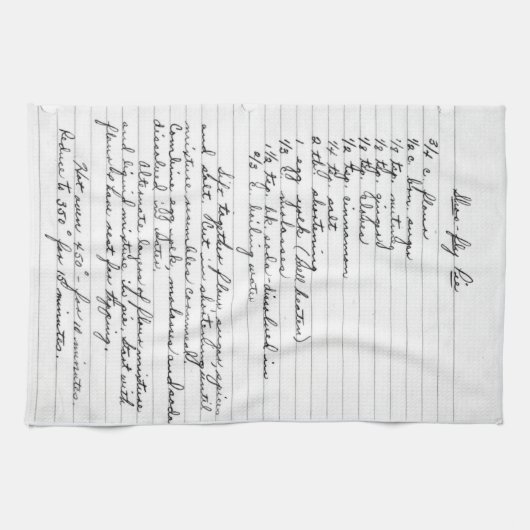 Shoo-fly Pie
3/4 c. flour
1/2 c. brn. sugar
1/2 tsp. nutmeg
1/2 tsp. ginger
1/2 tsp. cloves
1/2 tsp. cinnamon
1/4 tsp. salt
2 tbs. shortening
1 egg yolk (well beaten)
1/3 c. molasses
1 1/2 tsp. bk. soda - dissolved in
2/3 c. boiling water
Sift together flour, sugar, spices
and salt. Cut in shortening until
mixture resembles cornmeal.
Combine egg yolk, molasses and soda
dissolved water
Alternate layers of flour mixture
and liquid mixture in pie. Start with
flour & have rest for topping.
Hot oven 450° - for 10 minutes.
Reduce to 350° for 15 minutes.